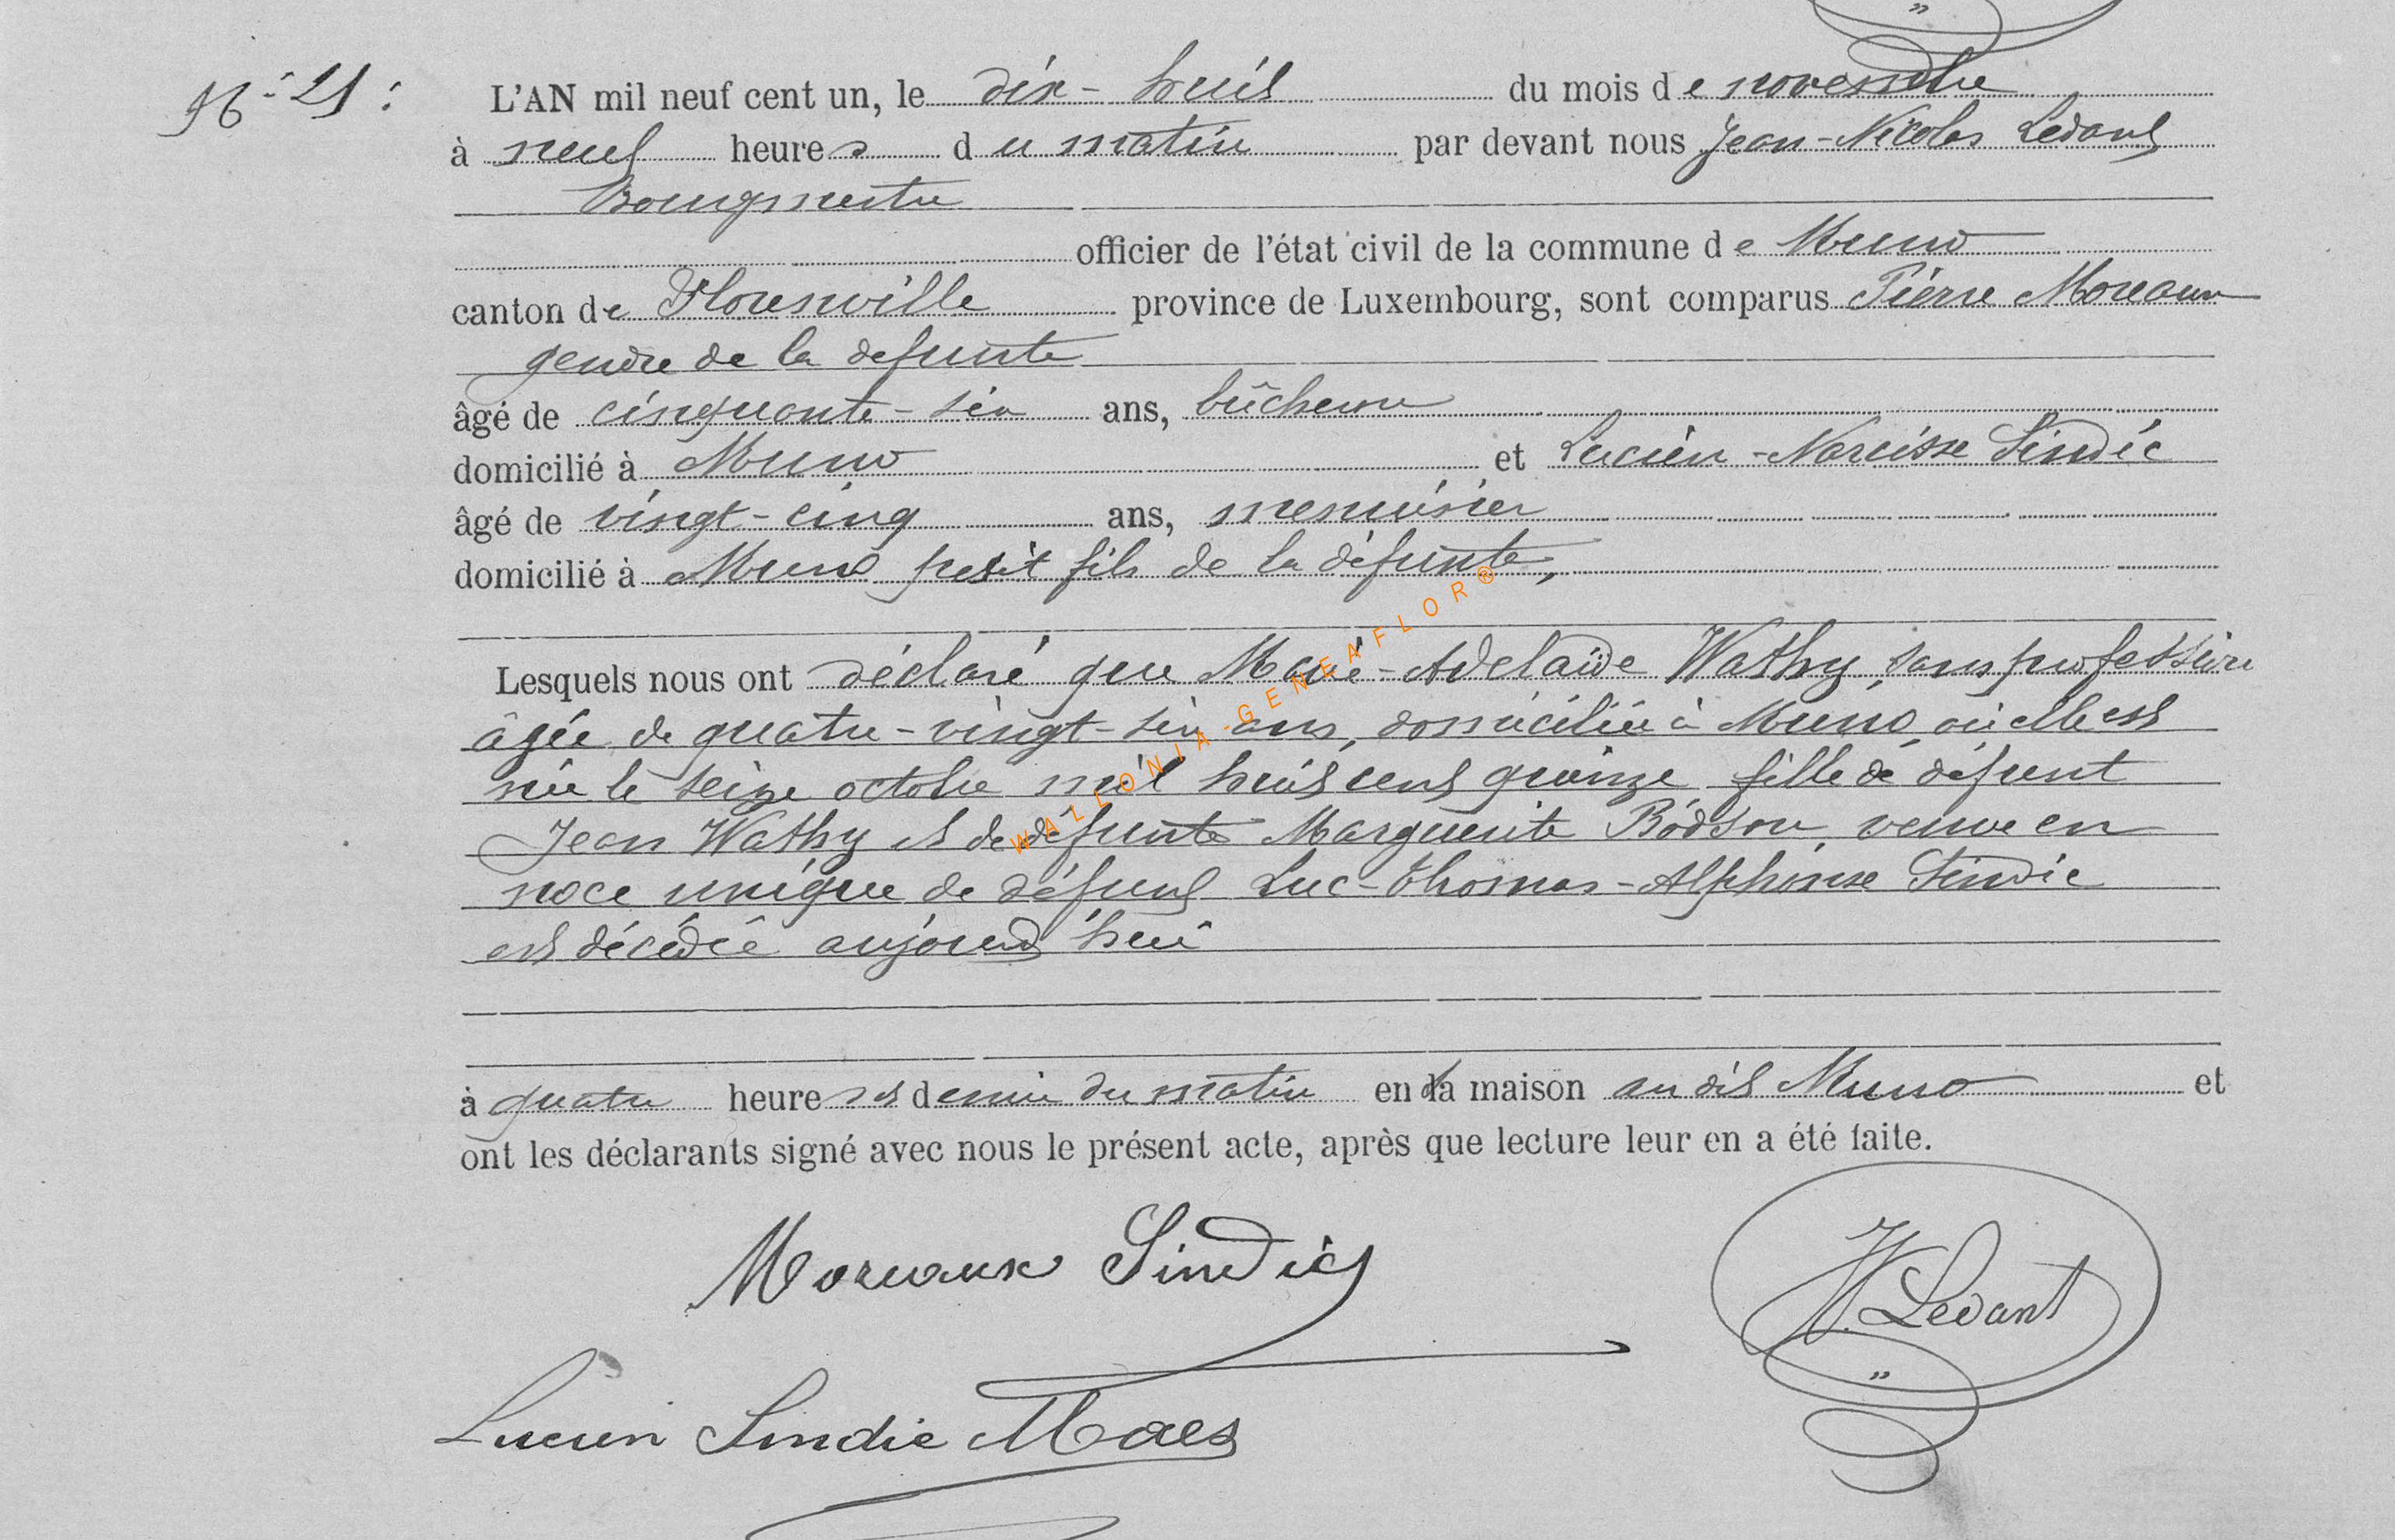 N° 21 :
L'AN mil neuf cent un, le dix-huit du mois de novembre
à neuf heures du matin par devant nous Jean-Nicolas Ledant
Bourgmestre
officier de l'état civil de la commune de Muno
canton de Florenville province de Luxembourg, sont comparus Pierre Moreaux
gendre de la défunte
âgé de cinquante-six ans, bûcheron
domicilié à Muno et Lucien-Narcisse Sindic
âgé de vingt-cinq ans, menuisier
domicilié à Muno petit fils de la défunte,
Lesquels nous ont déclaré que Marie-Adelaïde Wathy, sans profession
âgée de quatre-vingt-six ans, domiciliée à Muno, où elle est
née le seize octobre mil huit cent quinze fille de défunt
Jean Wathy et de défunte Marguerite Bodson, veuve en
noce unique de défunt Luc-Thomas-Alphonse Sindic
est décédée aujourd'hui
à quatre heures et demie du matin en sa maison au dit Muno et
ont les déclarants signé avec nous le présent acte, après que lecture leur en a été faite.
Moreaux Sindic
N. Ledant
Lucien Sindic Maes
WALLONIA-GENEAFLOR®